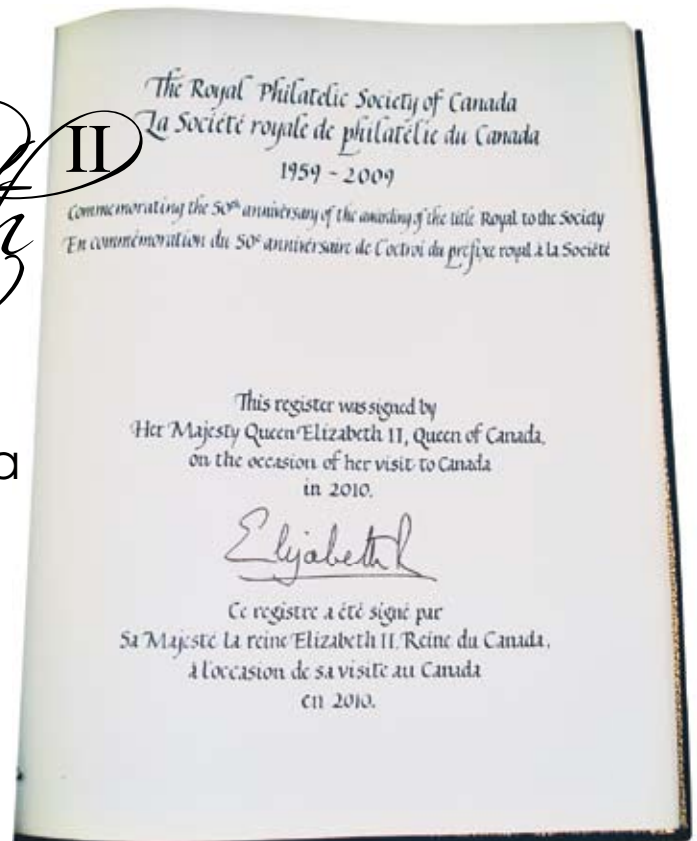 The Royal Philatelic Society of Canada
La Société royale de philatélie du Canada
1959 - 2009
Commemorating the 50th anniversary of the awarding of the title Royal to the Society
En commémoration du 50e anniversaire de l'octroi du préfixe royal à la Société
II
This register was signed by
Her Majesty Queen Elizabeth II, Queen of Canada,
on the occasion of her visit to Canada
in 2010.
Elizabeth R
Ce registre a été signé par
Sa Majesté La reine Elizabeth II, Reine du Canada,
à l'occasion de sa visite au Canada
en 2010.
a